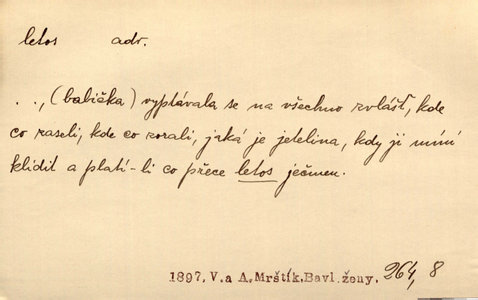 letos adv.
..., (babička) vyptávala se na všechno zvlášť, kde
co zaseli, kde co zorali, jaká je jetelina, kdy ji míní
klidit a platí-li co přece letos ječmen.
1897, V. a A. Mrštík. Bavl. ženy. 264, 8